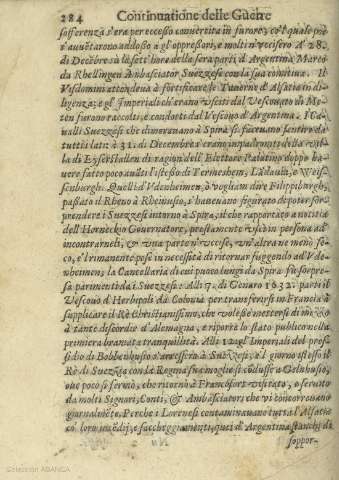 284 Continuatione delle Guerre
sofferenza s'era per eccesso convertita in furore, co'l quale poi
s'auuëtarono addosso a gl'oppressori, e molti n'vccisero A' 28.
di Decëbre à la settª hora della sera partì d'Argentina Marco
da Rhellingen Ambasciator Suezzese con la sua comitiua. Il
Visdomini attendeua à fortificare le Tauerne d'Alsatia in di-
ligenza; e gl'Imperiali ch'erano vsciti dal Vescouato di Me-
ten furono raccolti, e condotti dal Vescouo d'Argentina. I Ca-
ualli Suezzesi che dimorauano à Spira si faceuano sentire da
tutti i lati: à 31. di Decembre s'erano impadroniti della vil-
la di Eysersthallen di ragion dell'Elettore Palatino doppo ha-
uere fatto poco auäti l'istesso di Fermeshem, Lādauh, e Weis-
senburgh. Quelli d'Vdenheimen, ò vogliam dire Filippburgh,
passato il Rheno à Rheinhusio, s'haueuano figurato di poter sor-
prendere i Suezzesi intorno à Spira, il che rapportato à notitia
dell'Horneckio Gouernatore, prestamente vscì in persona ad
incontrarneli, & vna parte n'vccise, vn'altra ne menò se-
co, e'l rimanente pose in necessità di ritornar fuggendo ad Vde-
nheimen; la Cancellaria di cui puoco lungi da Spira fù sorpre-
sa parimenti da i Suezzesi. Alli 7. di Genaro 1632. partì il
Vescouo d'Herbipoli da Colonia per transferirsi in Francia à
supplicare il Rè Christianissimo, che volesse mettersi di mezo
à tante discordie d'Alemagna, e riporre lo stato publico nella
primiera bramata tranquilità. Alli 12. gl'Imperiali del pre-
sidio di Bobbenhusio s'arresero à Suezzesi; e'l giorno istesso il
Rè di Suezzia con la Regina sua moglie si cōdusse a Gelnhusio,
oue poco si fermò, che ritornò à Francfort visitato, e seruito
da molti Signori, Conti, & Ambasciatori che vi concorreuano
giornalmēte. Perche i Lorenesi contaminauano tutta l'Alsatia
cō loro incēdij, e saccheggiamenti, quei d'Argentina stanchi di
soppor-
Colección ABANCA